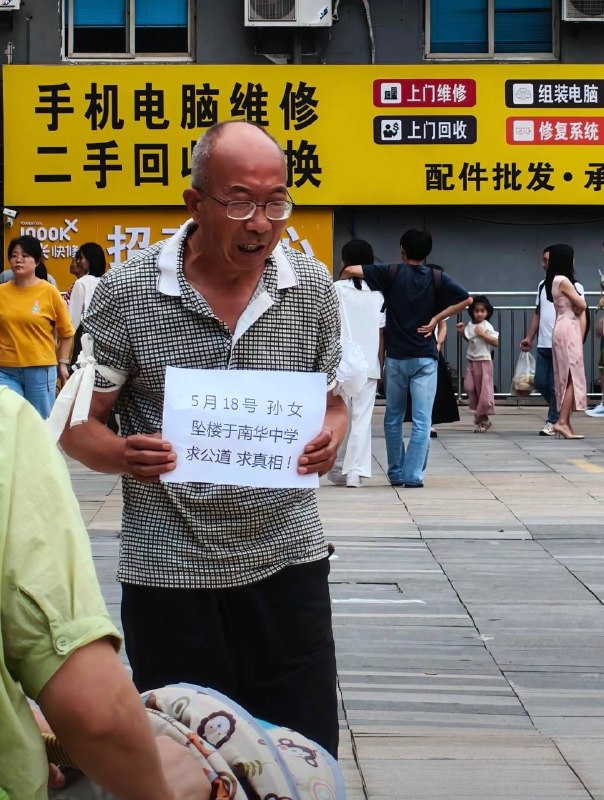 手机电脑维修
二手回
换
上门维修
组装电脑
上门回收
修复系统
配件批发·承
1000K
快修
招
5月18号 孙女
坠楼于南华中学
求公道 求真相！